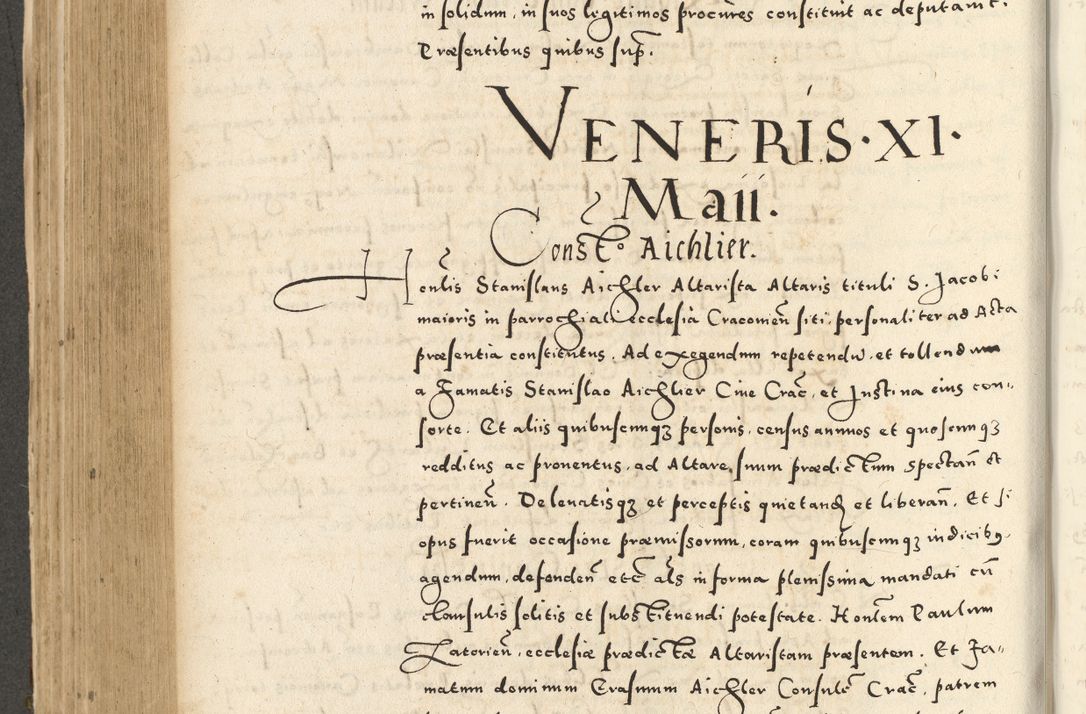 in solidum, in suos legitimos procures constituit ac deputavit.
Præsentibus quibus sup.
VENERIS · XI ·
Maii.
Const.º Aichlier.
Honlis Stanislaus Aichler Altarista Altaris tituli S. Jacobi
maioris in parrochiali ecclesia Cracovien siti, personaliter ad Acta
præsentia constitutus, Ad exegendum repetendū, et tollendum
a Famatis Stanislao Aichlier Cive Crac, et Justina eius con-
sorte. Et aliis quibuscunqz personis, census annuos et quoscunqz
redditus ac proventus, ad Altare suum prædictum spectan et
pertinen. De levatisqz et perceptis quietand et liberan. Et si
opus fuerit occasione præmissorum, coram quibuscunqz iudicibus
agendum, defenden etc als in forma plenissima mandati cū
clausulis solitis et substituendi potestate. Honlem Paulum
Zatorien, ecclesiæ prædictæ Altaristam præsentem. Et Fa-
matum dominum Erasmum Aichler Consule Crac, patrem